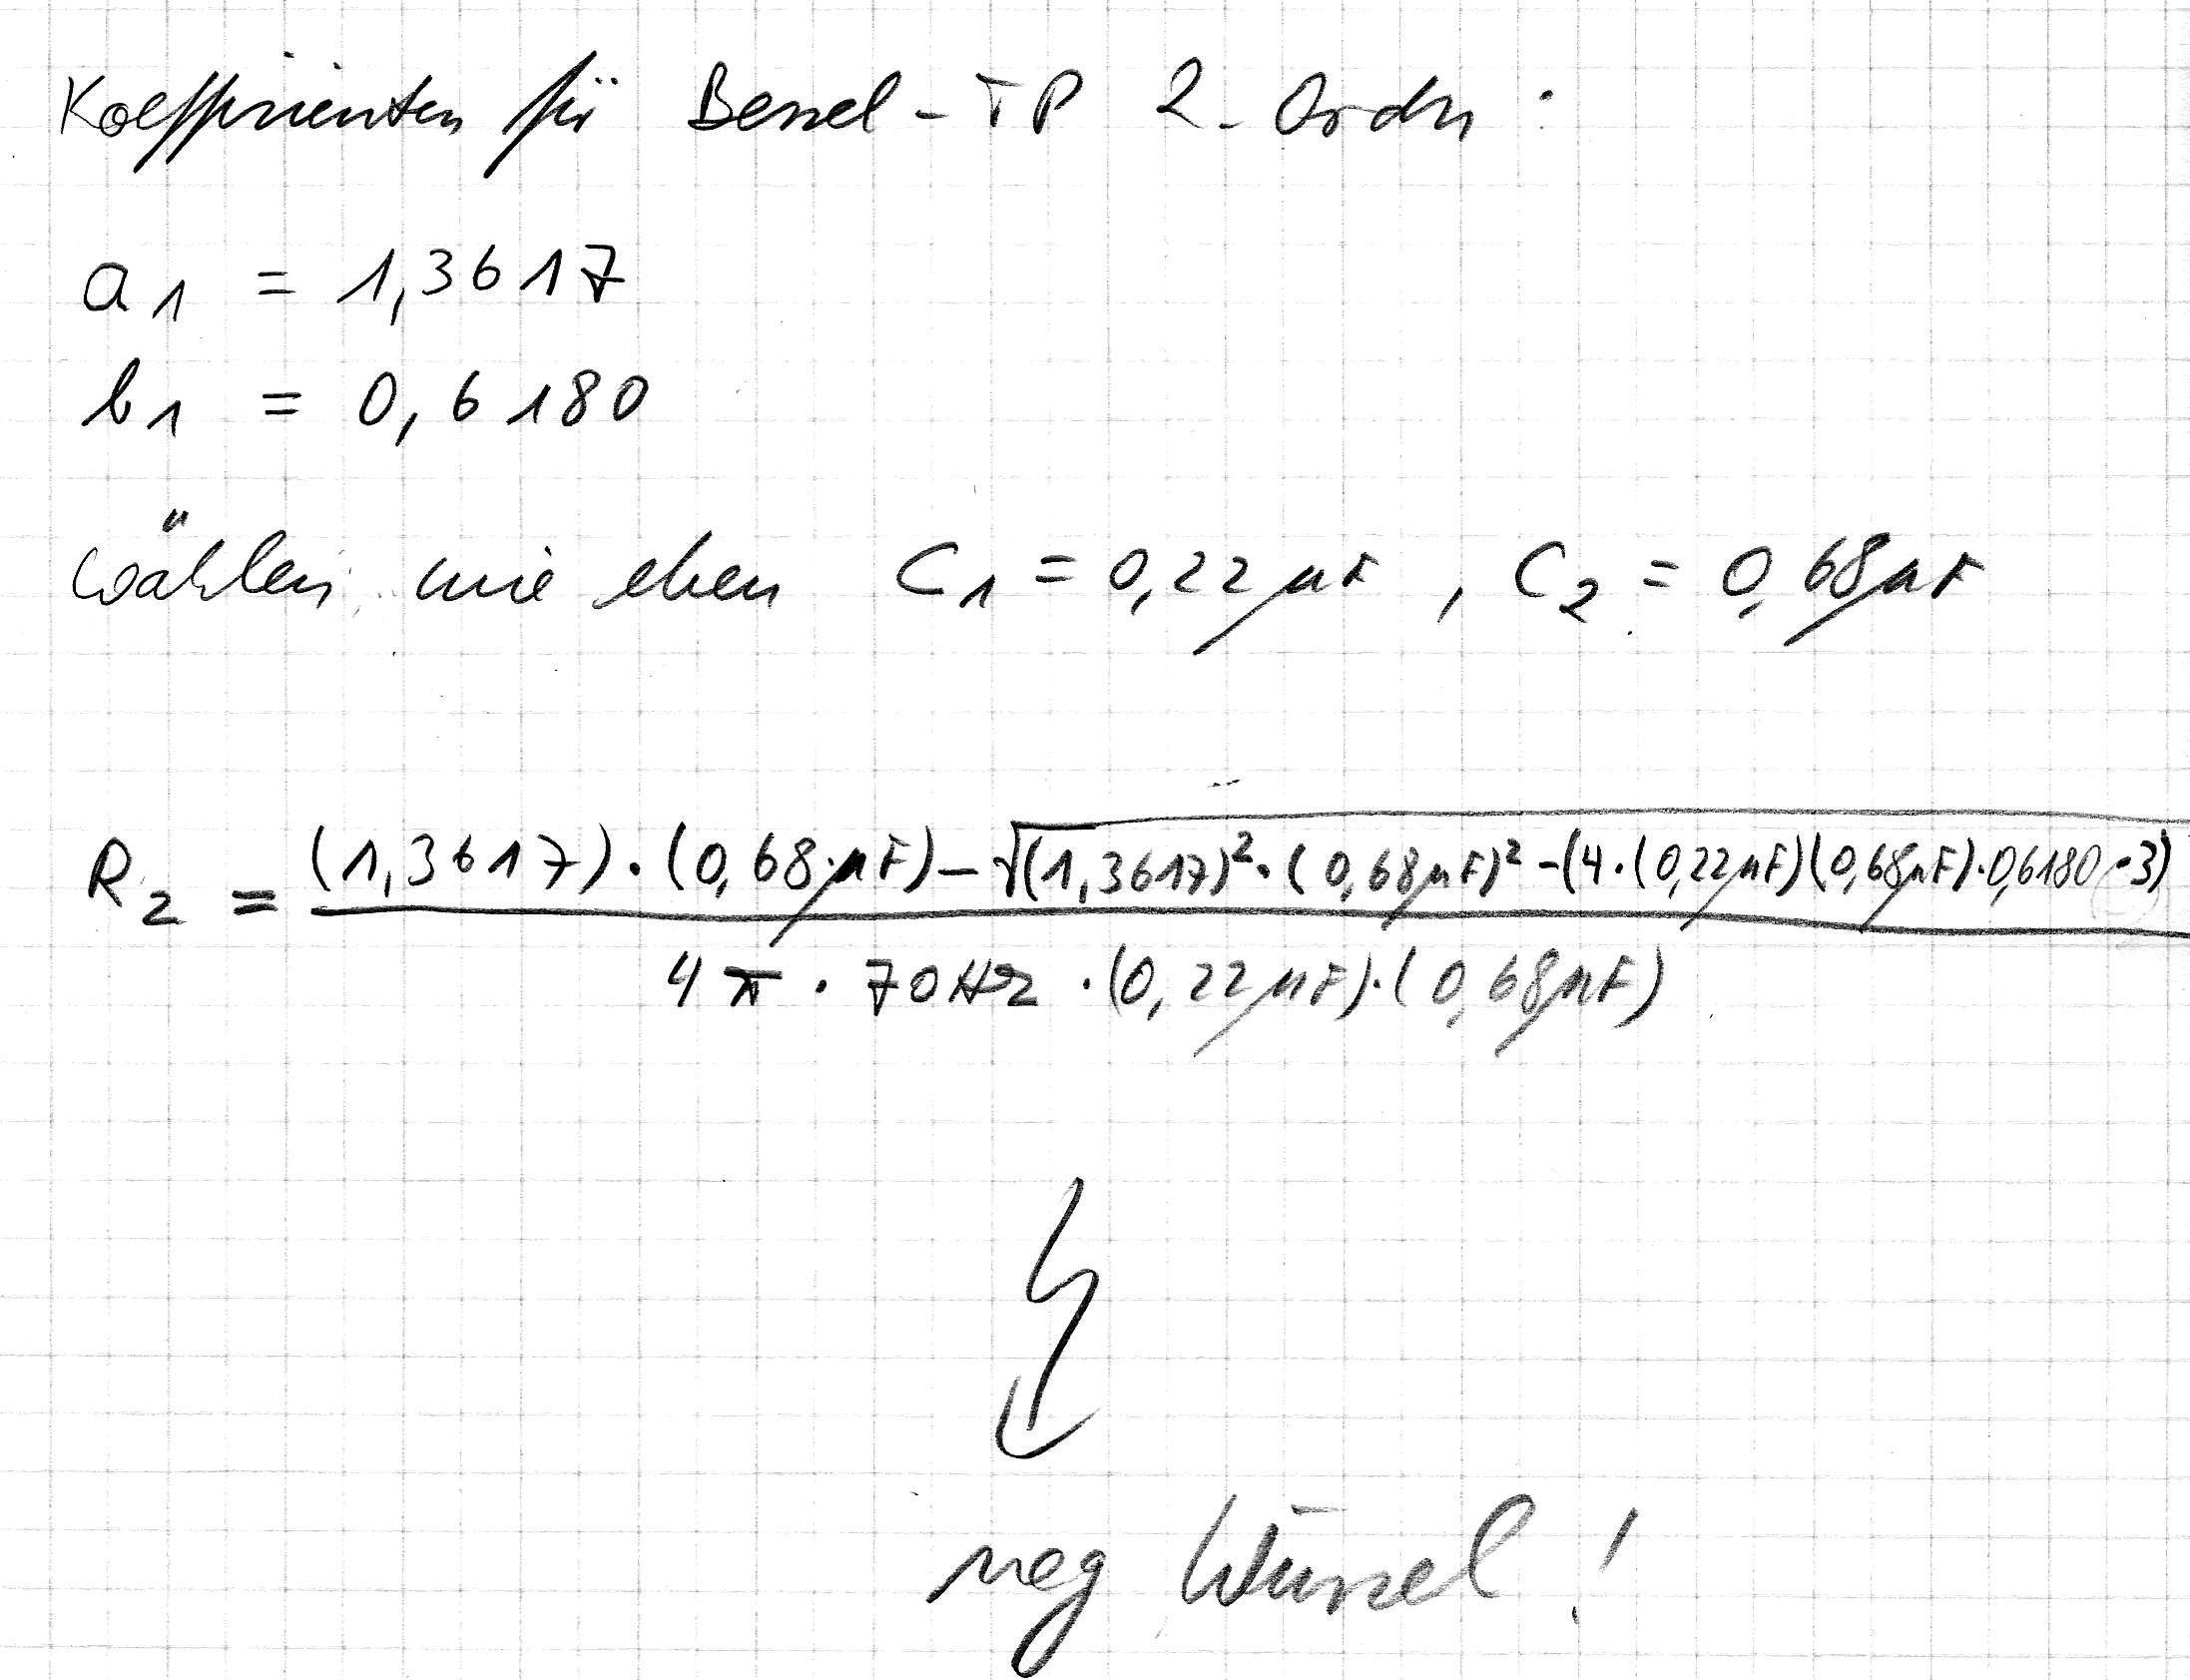 Koeffizienten für Bessel-TP 2. Ordn:
a1 = 1,3617
b1 = 0,6180
Wählen wie eben C1 = 0,22µF, C2 = 0,68µF
R2 = ((1,3617)·(0,68µF) − √((1,3617)²·(0,68µF)² − (4·(0,22µF)(0,68µF)·0,6180·3))) / (4π · 70Hz · (0,22µF)·(0,68µF))
neg Wurzel!